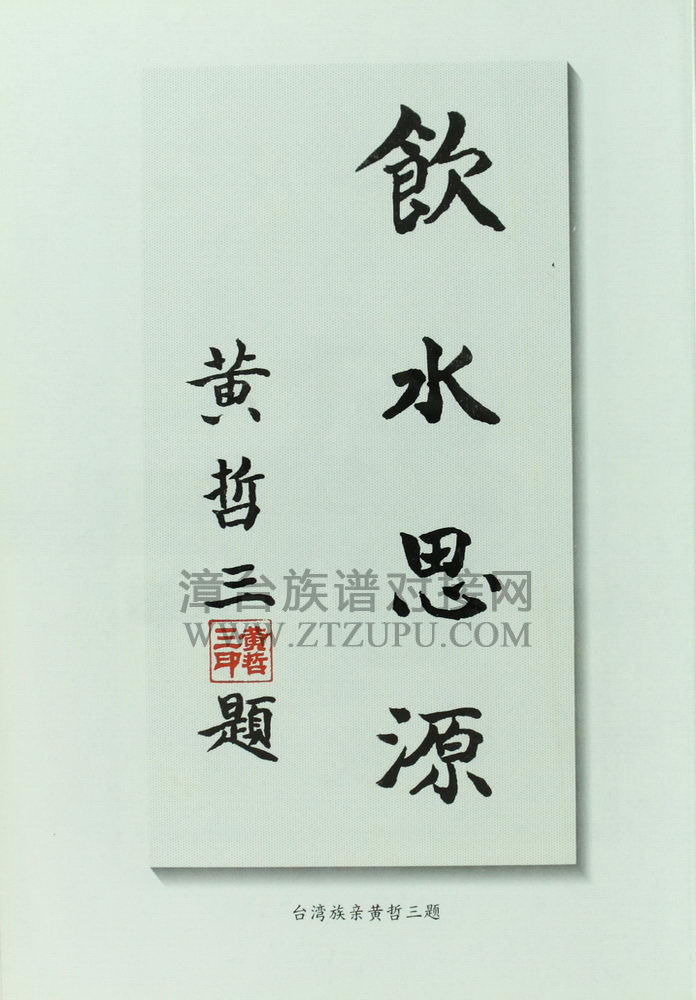 飲水思源
黄哲三題
黄哲三印
漳台族谱对接网
WWW.ZTZUPU.COM
台湾族亲黄哲三题